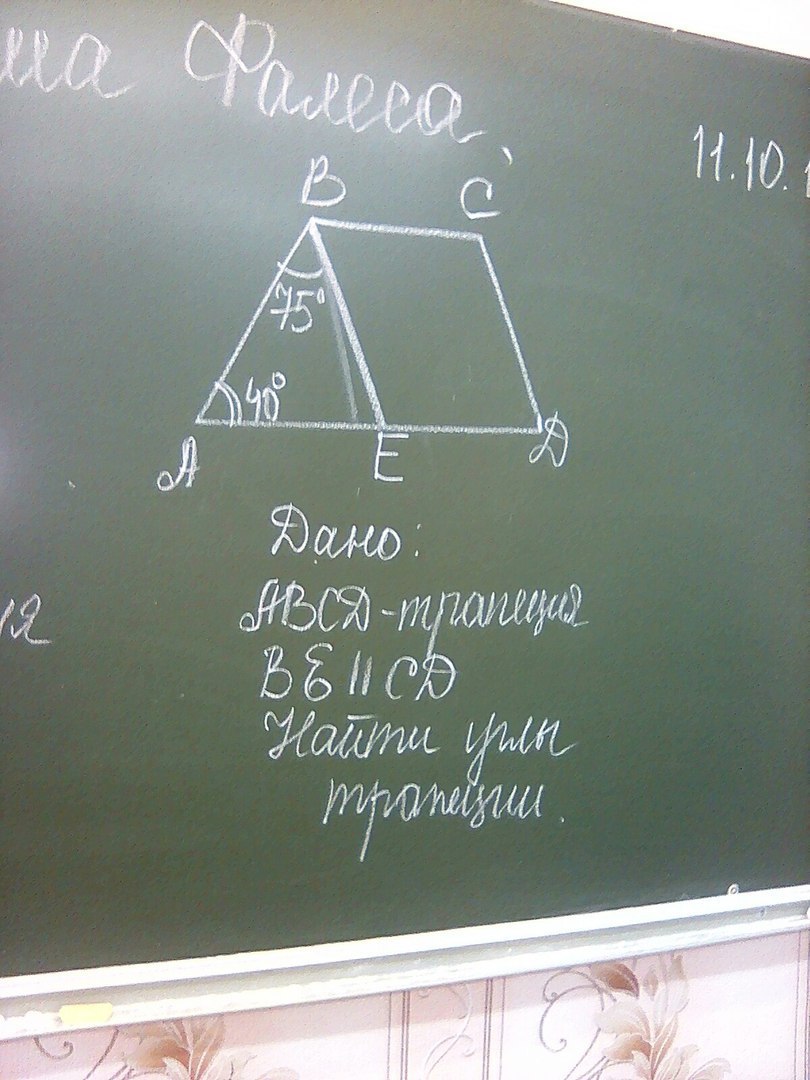 Фалеса
11.10.
B
C
75°
40°
A
E
D
Дано:
ABCD-трапеция
BE || CD
Найти углы
трапеции.